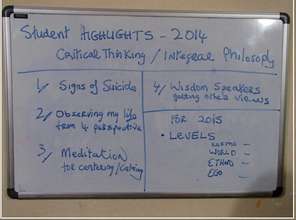 Student HIGHLIGHTS - 2014
Critical Thinking / Integral Philosophy
1/ Signs of Suicide
2/ Observing my life
from 4 perspective
3/ Meditation
for centering / calming
4/ Wisdom Speakers
getting other's views
FOR 2015
• LEVELS
WORLD -
ETHNO -
EGO -